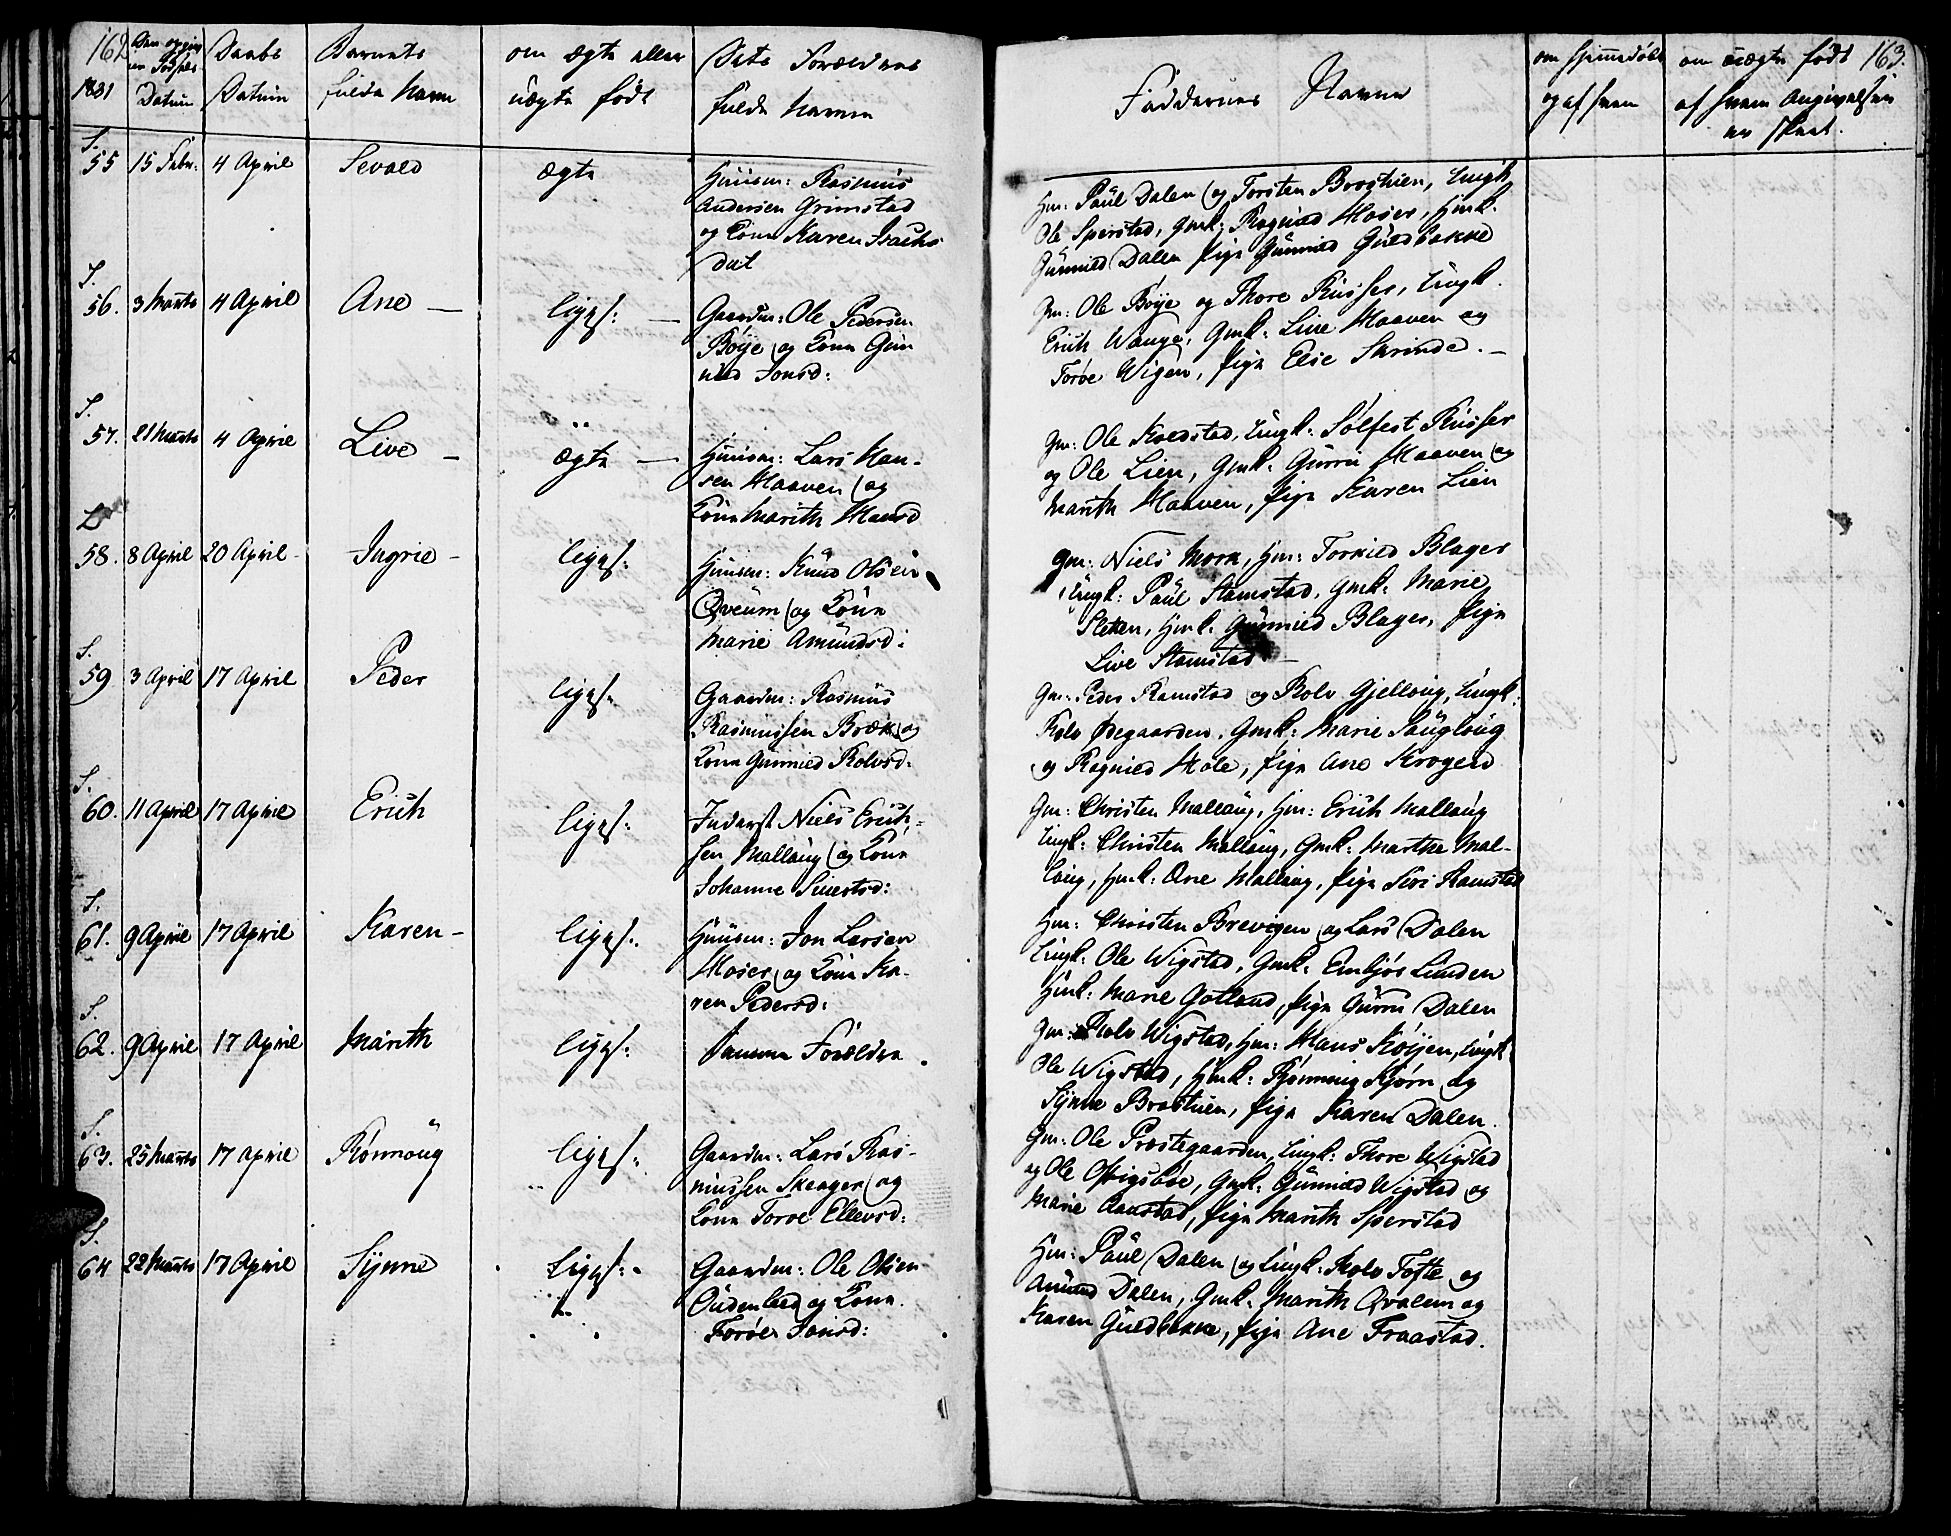 162
1831
Den opgivne Fødsels Datum
Daabs Datum
Barnets fulde Navn
om ægte eller uægte født
Dets Forældres fulde Navne
S.
55 15 Febr. 4 April Sevald ægte Huusm: Rasmus
Andersen Grimstad
og Kone Karen Isachs
dat
S.
56. 3 Marts 4 April Ane — liges: — Gaardm: Ole Pedersen
Bøye og Kone Gun
nild Jonsd:
S.
57. 21 Marts 4 April Live — ægte — Huusm: Lars Han-
sen Haaven og
Kone Marith Hansd
58. 8 April 20 April - Ingrid - liges: Huusm: Knud Olsen
Qveum og Kone
Marie Amundsd:
S.
59 3 April 17 April Peder liges: Gaardm: Rasmus
Rasmussen Bræk og
Kone Gunnild Rolvsd:
S.
60. 11 April 17 April Erich liges: Inderst Niels Erich-
sen Mallaug og Kone
Johanne Siuertsd:
S.
61. 9 April 17 April Karen - liges: Huusm: Jon Larsen
Moser og Kone Ka-
ren Pedersd:
S.
62. 9 April 17 April Marith liges: Samme Forældre.
S.
63. 25 Marts 17 April Rønnoug liges: Gaardm: Lars Ras-
mussen Skenger og
Kone Torøe Ellevsd:
S.
64 22 Marts 17 April Synne ligес: Gaardm: Ole Olsen
og Kone
Torøe Jonsd:
163.
Faddernes Navne
om hjemmedøbt og af hvem
om uægte født af hvem Angivelsen er skeet.
Hm: Paul Dalen og Torsten Brostuen, Ungk.
Ole Sperstad, Gmk: Ragnild Moser, Hmk.
Gunnild Dalen Pige Gunnild Guldbakke
Gm: Ole Bøye og Thore Russer, Ungk.
Erich Wange, Gmk: Live Haaven og
Torøe Wigen, Pige Elie Skrinde. —
Gm: Ole Kvedstad, Ungk: Sølfest Russer
og Ole Lien, Gmk: Gurru Haaven og
Marith Haaven, Pige Karen Lien
Gm: Niels Mork, Hm: Torkild Blager
Ungk: Paul Stamstad, Gmk: Marie
Sletten, Hmk. Gunnild Blager, Pige
Live Stamstad —
Gm: Peder Ramstad og Rolv Gjelloug, Ungk:
Rolv Ødegaarden, Gmk: Marie Saugloug
og Ragnild Hole, Pige Ane Krogerd
Gm: Christen Mallaug, Hm: Erich Mallaug
Ungk: Christen Mallaug, Gmk: Marthe Mal-
laug, Hmk: Ane Mallaug, Pige Siri Ramstad
Hm: Christen Brevigen og Lars Dalen
Ungk: Ole Wigstad, Gmk: Embjør Linden
Hmk: Marie Gotland, Pige Gurru Dalen
Gm: Rolv Wigstad, Hm: Hans Køyen, Ungk
Ole Wigstad, Hmk: Rønnoug Kjørn og
Synne Brostuen, Pige Karen Dalen.
Gm: Ole Præstegaarden, Ungk: Thore Wigstad
og Ole Ofrigsbøe, Gmk: Gunnild Wigstad og
Marie Aanstad, Pige Marith Sperstad
Hm: Paul Dalen og Ungk: Rolv Tofte og
Amund Dalen, Gmk: Marith Qvalum og
Karen Guldbakke, Pige Ane Fraastad.